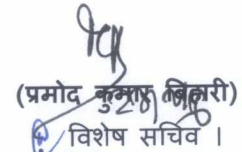 (प्रमोद कुमार बिहारी)
विशेष सचिव ।